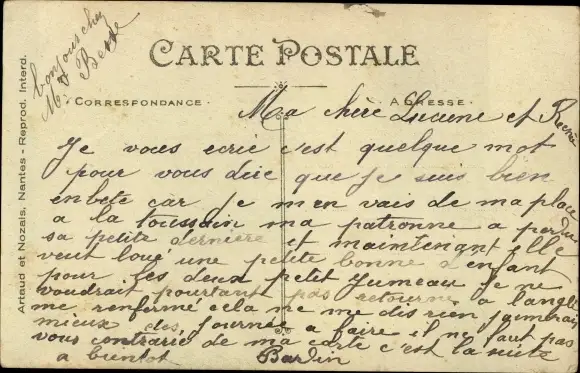 bonjour chez
Mr Besse
CARTE POSTALE
CORRESPONDANCE
ADRESSE
Artaud et Nozais, Nantes - Reprod. Interd.
Ma chère Lucienne et
Je vous ecrie c'est quelque mot
pour vous dire que je suis bien
enbete car je m'en vais de ma place
a la toussain ma patronne a perdu
sa petite dernière et maintenant elle
veut loué une petite bonne d'enfant
pour les deux petit jumeau je ne
voudrait pourtant pas retourné a l'angl
me renfermé cela ne me dis rien j'aimerais
mieux des journé a faire il ne faut pas
vous contrarié de ma carte c'est la suite
a bientot Bardin